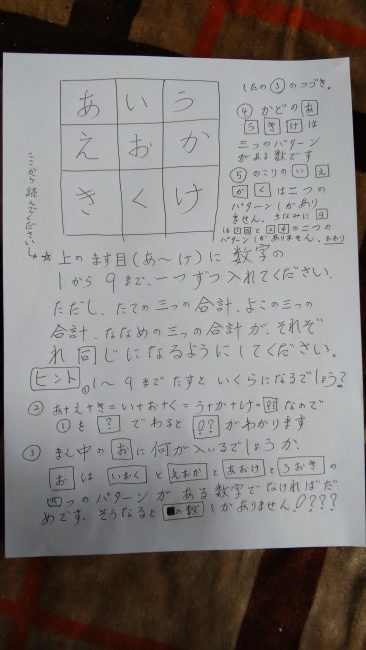 あ い う
え お か
き く け
ここから読んでください
したの③のつづき。
④ かどの あ
う き け は
三つのパターン
がある数です
⑤ のこりの い え
か く は二つの
パターンしかあり
ません。ちなみに 9
は 1 5 と 2 4 の二つの
パターンしかありません。おわり
☆ 上のます目(あ〜け)に 数字の
1から 9まで、一つずつ入れてください。
ただし、たての三つの合計、よこの三つの
合計、ななめの三つの合計が、それぞ
れ 同じになるようにしてください。
ヒント ① 1〜9まで たすと いくらになるでしょう?
② あ+え+き=い+お+く=う+か+け=?? なので
①を ? でわると ?? がわかります
③ まん中の お に何が入いるでしょうか、
お は いおく と えおか と あおけ と うおき の
四つのパターンが ある数字でなければだ
めです、そうなると の数 しかありません!???